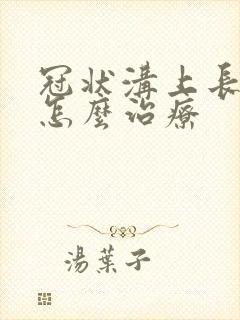 冠状溝上長
怎麼治療
湯葉子